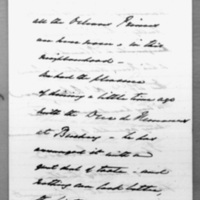 all the Orleans Princes
are here now & in this
neighbourhood —
We had the pleasure
of dining a little time ago
with the Duc de Nemours
at Bushey — he has
arranged it with a
good deal of taste — and
nothing can look better,